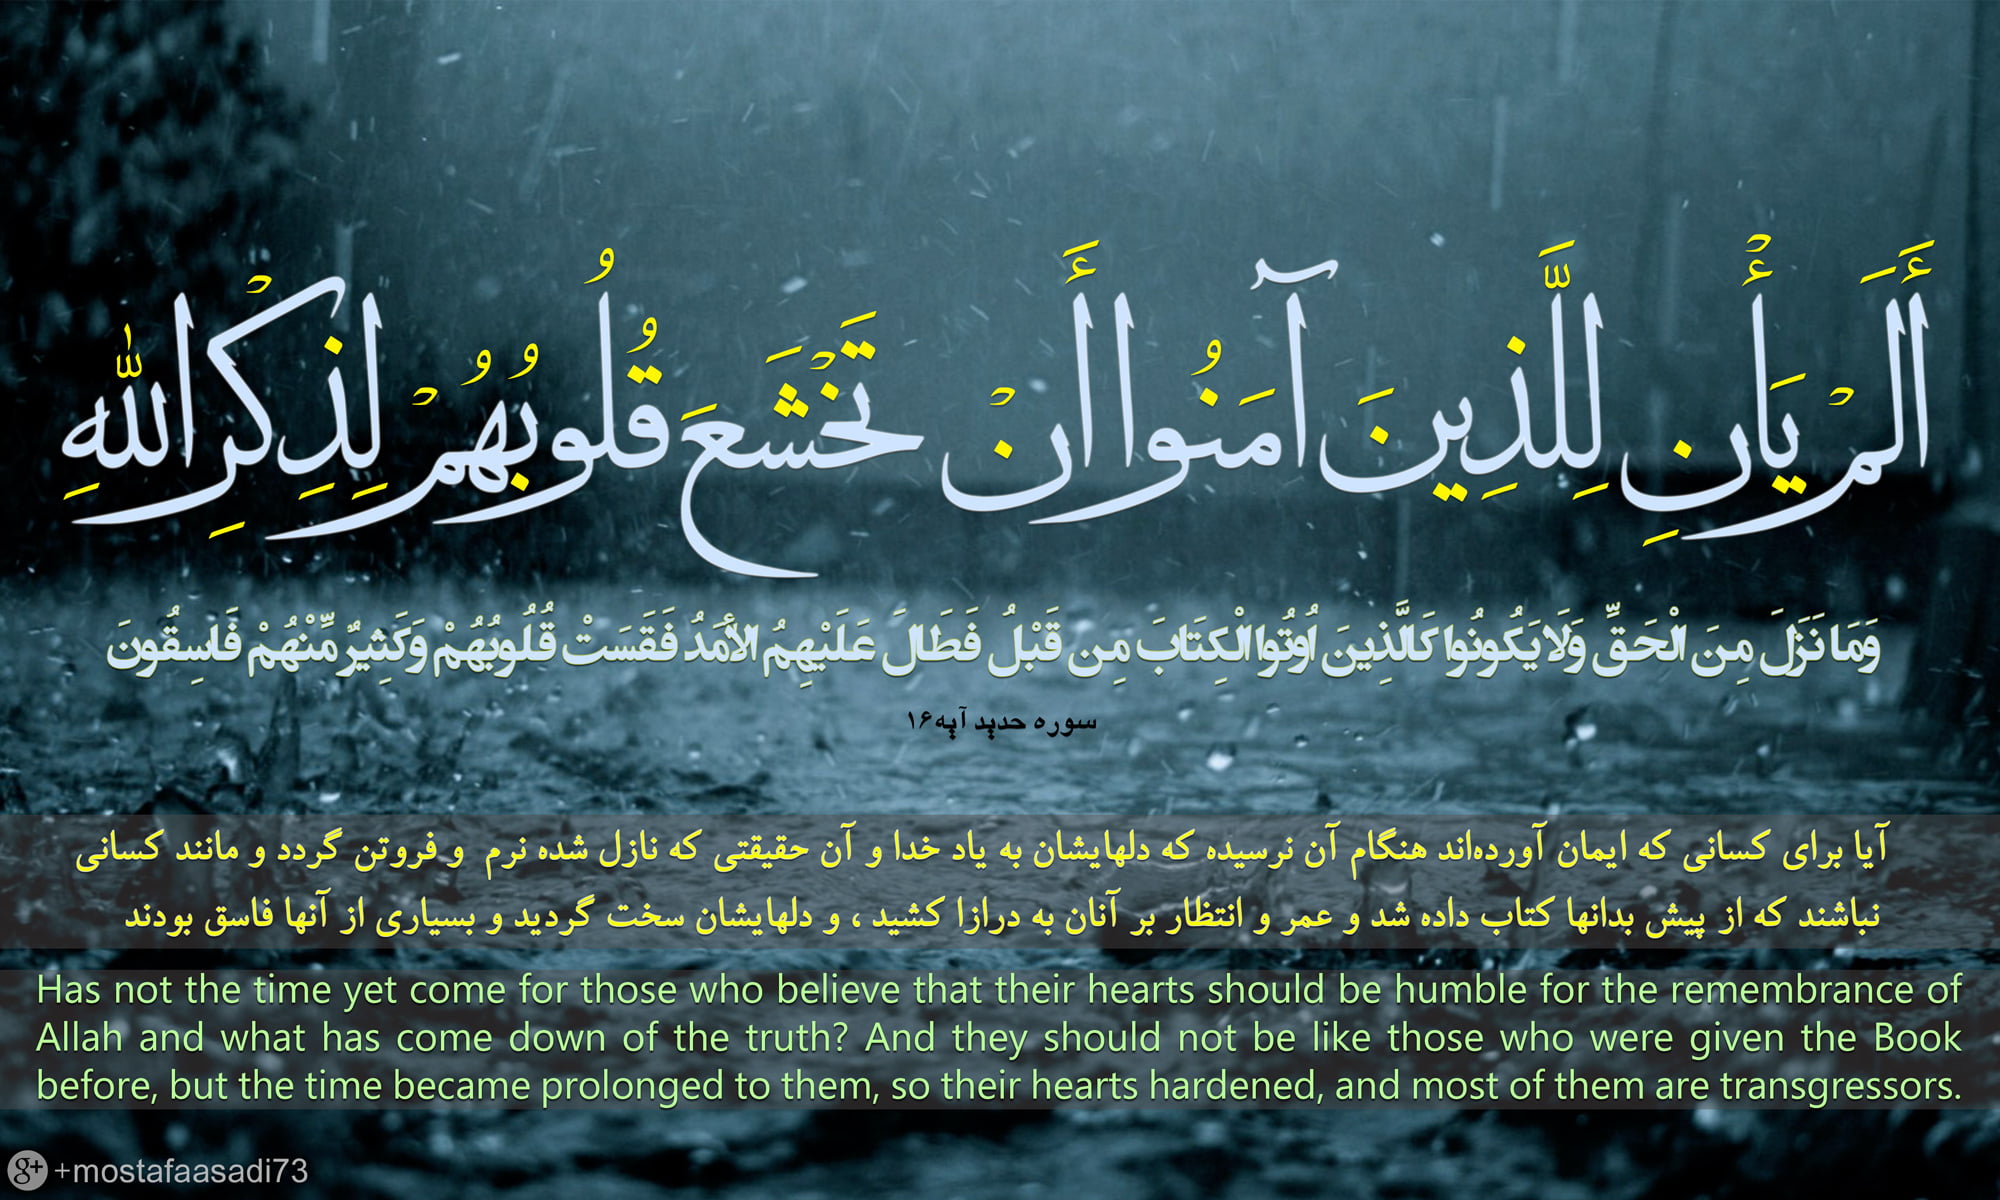 أَلَمْ يَأْنِ لِلَّذِينَ آمَنُوا أَنْ تَخْشَعَ قُلُوبُهُمْ لِذِكْرِ اللَّهِ
وَمَا نَزَلَ مِنَ الْحَقِّ وَلَا يَكُونُوا كَالَّذِينَ أُوتُوا الْكِتَابَ مِن قَبْلُ فَطَالَ عَلَيْهِمُ الْأَمَدُ فَقَسَتْ قُلُوبُهُمْ وَكَثِيرٌ مِّنْهُمْ فَاسِقُونَ
سوره حدید آیه۱۶
آیا برای کسانی که ایمان آورده‌اند هنگام آن نرسیده که دلهایشان به یاد خدا و آن حقیقتی که نازل شده نرم و فروتن گردد و مانند کسانی
نباشند که از پیش بدانها کتاب داده شد و عمر و انتظار بر آنان به درازا کشید ، و دلهایشان سخت گردید و بسیاری از آنها فاسق بودند
Has not the time yet come for those who believe that their hearts should be humble for the remembrance of
Allah and what has come down of the truth? And they should not be like those who were given the Book
before, but the time became prolonged to them, so their hearts hardened, and most of them are transgressors.
g+ +mostafaasadi73